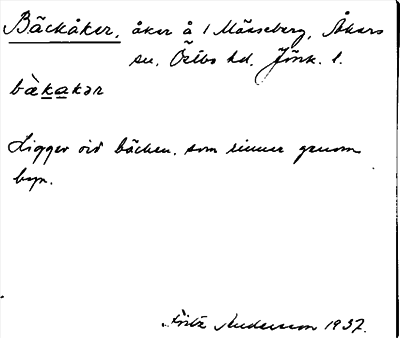 Bäckåker, åker å 1 Måaseberg, Åkers
sn, Östbo hd, Jönk. l.
bàkakər
Ligger vid bäcken, som rinner genom
byn.
Fritz Andersson 1937.